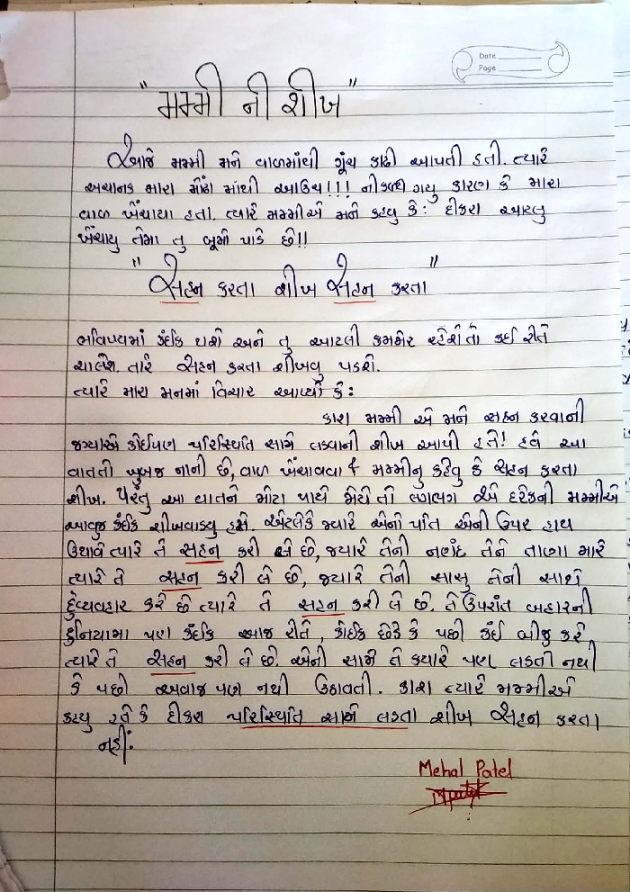 Date
Page
"મમ્મી ની શીખ"
આજે મમ્મી મને વાળમાંથી ગૂંચ કાઢી આપતી હતી. ત્યારે
અચાનક મારા મોઢા માંથી આઉચ!!! નીકળી ગયુ કારણ કે મારા
વાળ ખેંચાયા હતા. ત્યારે મમ્મીએ મને કહ્યુ કે: દીકરા આટલુ
ખેંચાયુ તેમા તુ બૂમો પાડે છે!!
"સહન કરતા શીખ સહન કરતા"
ભવિષ્યમાં કંઈક થશે અને તુ આટલી કમજોર રહેશે તો કઈ રીતે
ચાલશે. તારે સહન કરતા શીખવુ પડશે.
ત્યારે મારા મનમાં વિચાર આવ્યો કે:
કાશ મમ્મી એ મને સહન કરવાની
જગ્યાએ કોઈપણ પરિસ્થિતિ સામે લડવાની શીખ આપી હતે! હવે આ
વાતતો ખુબજ નાની છે, વાળ ખેંચાવવા ને મમ્મીનુ કહેવુ કે સહન કરતા
શીખ. પરંતુ આ વાતને મોટા પાયે જોઈએ તો લગભગ એ દરેકની મમ્મીએ
આવુજ કંઈક શીખવાડ્યુ હશે. એટલેકે જ્યારે એનો પતિ એની ઉપર હાથ
ઉઠાવે ત્યારે તે સહન કરી લે છે, જ્યારે તેની નણંદ તેને તાણા મારે
ત્યારે તે સહન કરી લે છે, જ્યારે તેની સાસુ તેની સાથે
દુર્વ્યવહાર કરે છે ત્યારે તે સહન કરી લે છે. તે ઉપરાંત બહારની
દુનિયામા પણ કંઈક આજ રીતે, કોઈક છેડે કે પછી કંઈ બીજુ કરે
ત્યારે તે સહન કરી લે છે. એની સામે તે ક્યારે પણ લડતી નથી
કે પછી અવાજ પણ નથી ઉઠાવતી. કાશ ત્યારે મમ્મીએ
કહ્યુ હતે કે દીકરા પરિસ્થિતિ સામે લડતા શીખ સહન કરતા
નહીં.
Mehal Patel